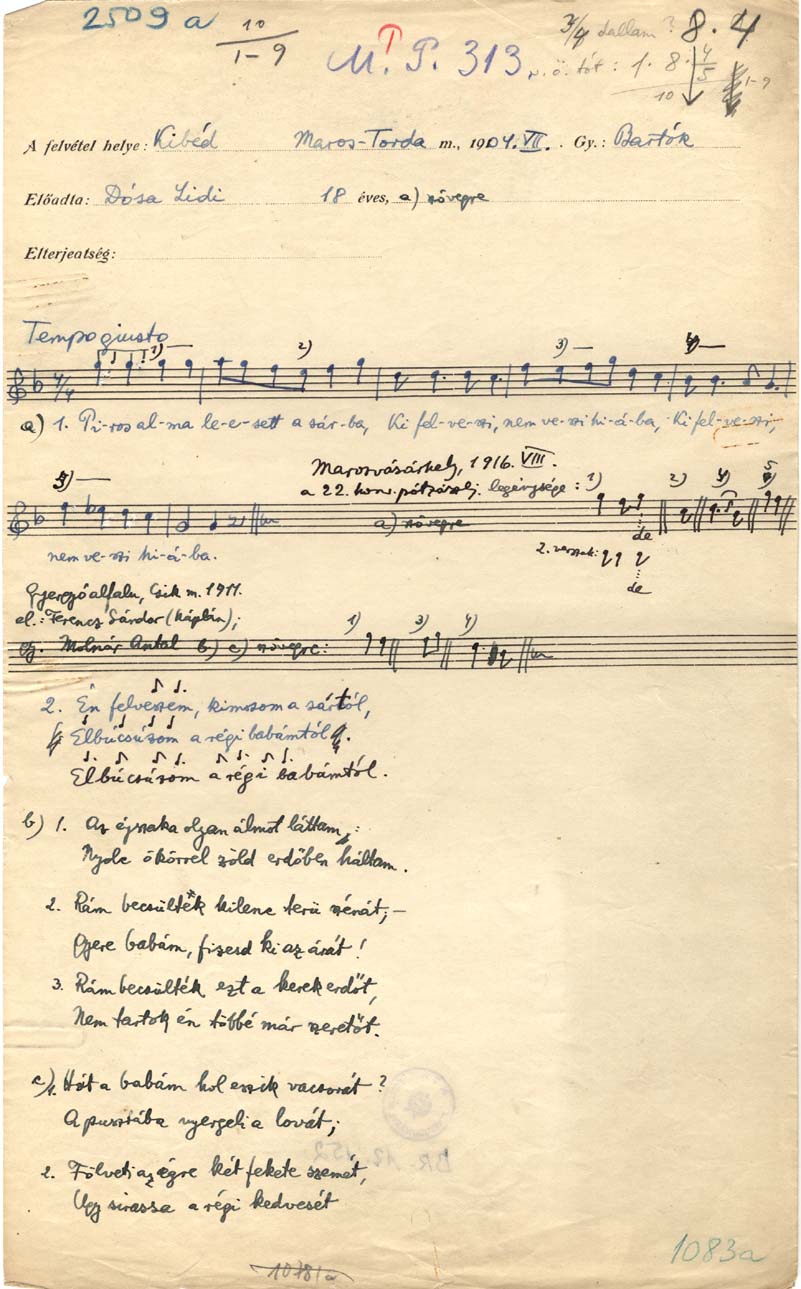 2509 a
10
1-9
M. P. 313
3/4 dallam ?
8. 4
1. 8. 4/5
10
1-9
A felvétel helye: Kibéd Maros-Torda m., 1904. VII. Gy.: Bartók
Előadta: Dósa Lidi 18 éves, a) szövegre
Elterjeatség:
Tempo giusto
1) 2) 3) 4)
4/4
a) 1. Pi-ros al-ma le-e-sett a sár-ba, Ki fel-ve-szi, nem ve-szi hi-á-ba, Ki fel-ve-szi,
Marosvásárhely, 1916. VIII.
a 22. honv. pótzászlj. legénysége: 1) 2) 4) 5)
5)
a) szövegre
de
nem ve-szi hi-á-ba.
2. versszak:
de
Gyergyóalfalu, Csik m. 1911.
el.: Ferencz Sándor (káplán);
gy. Molnár Antal b) c) szövegre: 1) 3) 4)
2. Én felveszem, kimosom a sártól,
Elbúcsúzom a régi babámtól.
Elbúcsúzom a régi babámtól.
b) 1. Az éjszaka olyan álmot láttam:
Nyolc ökörrel zöld erdőben háltam.
2. Rám becsülték kilenc terü szénát;—
Gyere babám, fizesd ki az árát!
3. Rám becsülték ezt a kerek erdőt,
Nem tartok én többé már szeretőt.
c) 1. Hát a babám hol eszik vacsorát?
A pusztába nyergeli a lovát;
2. Fölveti az égre két fekete szemét,
Ugy sirassa a régi kedvesét
1083a
1078/a